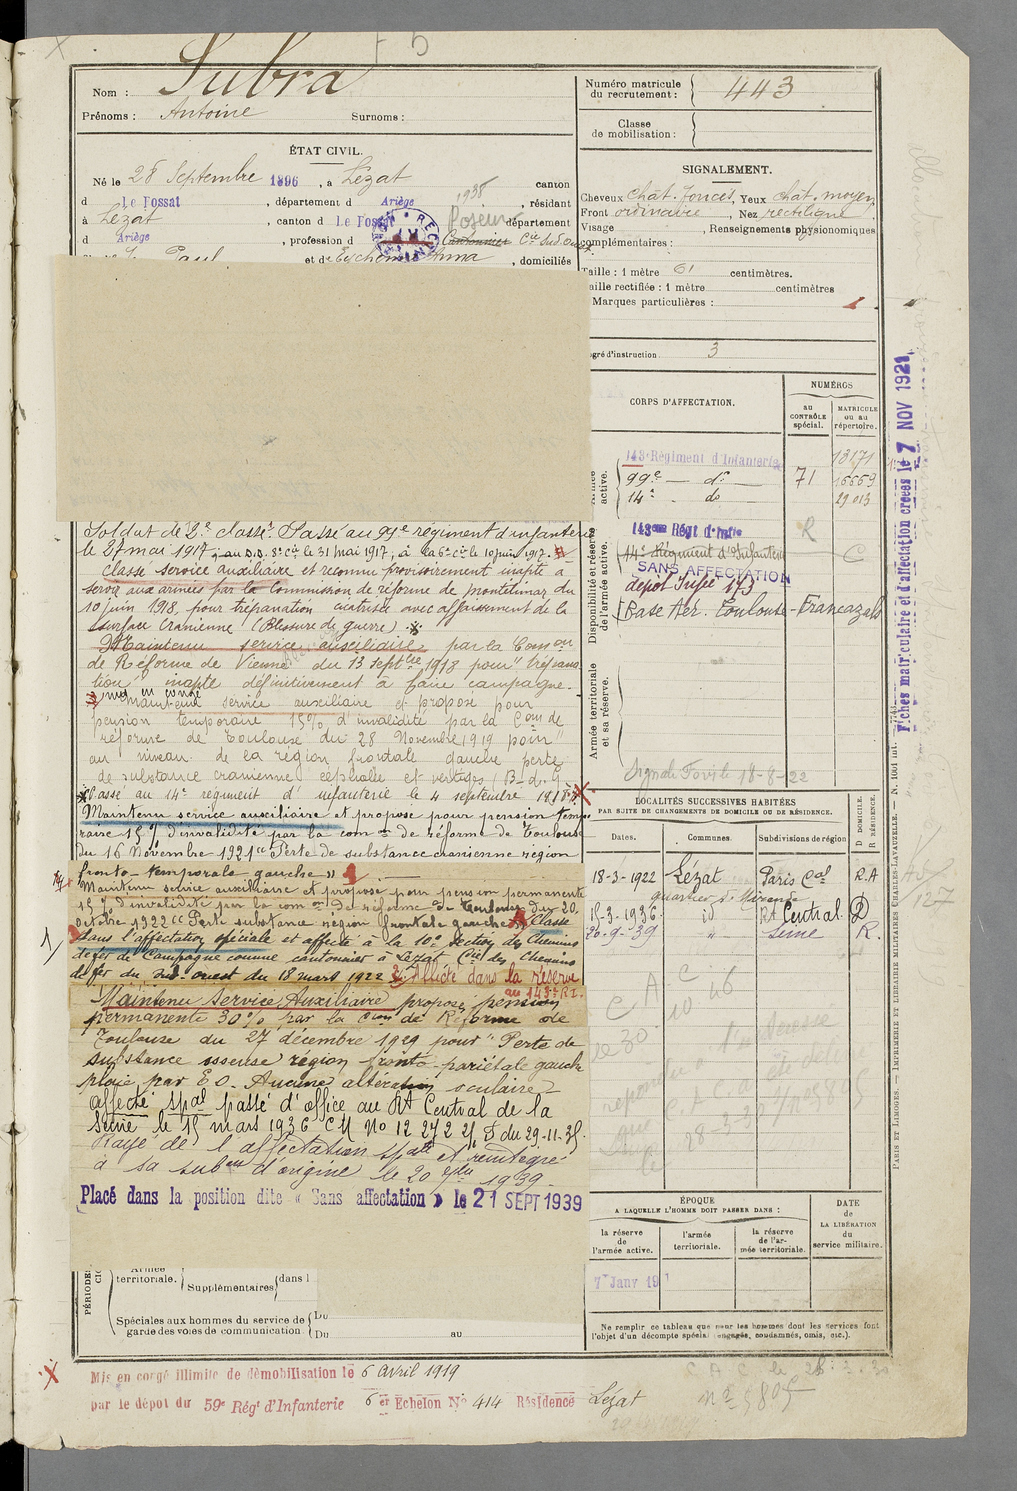 Nom : Subra
Prénoms : Antoine Surnoms :
Numéro matricule
du recrutement : 443
Classe
de mobilisation :
ÉTAT CIVIL.
Né le 28 Septembre 1896, à Lézat canton
d Le Fossat, département d Ariège, résidant
à Lézat, canton d Le Fossat, département
d Ariège, profession d Cantonnier Cie Sud-Ouest
1938
Poseur
Paul et d Anna, domiciliés
SIGNALEMENT.
Cheveux chât. foncés, Yeux chât. moyen
Front ordinaire, Nez rectiligne
Visage , Renseignements physionomiques
complémentaires :
Taille : 1 mètre 61 centimètres.
Taille rectifiée : 1 mètre centimètres
Marques particulières :
Degré d'instruction. 3
CORPS D'AFFECTATION.
NUMÉROS
au
CONTRÔLE
spécial.
MATRICULE
ou au
répertoire.
Armée
active.
143e Régiment d'Infanterie 13171
99e — do — 71 16669
14e - do 29013
Disponibilité et réserve
de l'armée active.
143ème Régt d'Infie R
14e Régiment d'Infanterie C
SANS AFFECTATION
dépot Infie 173
Base Aer. Toulouse-Francazal
Armée territoriale
et sa réserve.
Signalé Fovile 18-8-22
Soldat de 2e classe. Passé au 99e régiment d'infanterie
le 27 mai 1917, au D.D. 8e Cie le 31 mai 1917, à la 6e Cie le 10 juin 1917.
Classé service auxiliaire et reconnu provisoirement inapte à
servir aux armées par la Commission de réforme de Montélimar du
10 juin 1918, pour trépanation cicatrisée avec affaissement de la
surface cranienne (Blessure de guerre).
Maintenu service auxiliaire par la Comon
de Réforme de Vienne du 13 Septbre 1918 pour "trépana
tion" inapte définitivement à faire campagne.
mis en congé
Maintenu service auxiliaire et proposé pour
pension temporaire 15% d'invalidité par la Com de
réforme de Toulouse du 28 Novembre 1919 pour "
au niveau de la région frontale gauche perte
de substance cranienne céphalée et vertiges (B. d. G.
Passé au 14e régiment d'infanterie le 4 septembre 1918
Maintenu service auxiliaire et proposé pour pension tempo
raire 15% d'invalidité par la comon de réforme de Toulouse
du 16 Novembre 1921 "Perte de substance cranienne région
fronto-temporale gauche"
Maintenu service auxiliaire et proposé pour pension permanente
15% d'invalidité par la comon de réforme de Toulouse du 20
octobre 1922 "Perte substance région frontale gauche" Classé
dans l'affectation spéciale et affecté à la 10e section des Chemins
de fer de Campagne comme cantonnier à Lézat Cie des Chemins
de fer du Sud-ouest du 18 mars 1922 Affecté dans la réserve
au 143e R.I.
Maintenu Service Auxiliaire proposé pension
permanente 30% par la Cion de Réforme de
Toulouse du 27 décembre 1929 pour "Perte de
substance osseuse région fronto-pariétale gauche
Aucune altération oculaire
affecté spal passé d'office au Rt Central de la
Seine le 15 mars 1936 CM No 12272 du 29-11-35
Rayé de l'affectation spale et réintégré
à sa subon d'origine le 20 7bre 1939-
Placé dans la position dite « Sans affectation » le 21 SEPT 1939
LOCALITÉS SUCCESSIVES HABITÉES
PAR SUITE DE CHANGEMENTS DE DOMICILE OU DE RÉSIDENCE.
Dates. Communes. Subdivisions de région
D DOMICILE.
R RÉSIDENCE.
18-3-1922 Lézat Paris Cal R.A
quartier St Mirande
15-3-1936 id Rt Central D
20-9-39 " Seine R.
C A C
10 46
ÉPOQUE
A LAQUELLE L'HOMME DOIT PASSER DANS :
la réserve
de
l'armée active.
l'armée
territoriale.
la réserve
de l'ar-
mée territoriale.
DATE
de
LA LIBÉRATION
du
service militaire.
7 Janv 19
Ne remplir ce tableau que pour les hommes dont les services font
l'objet d'un décompte spécial (engagés, condamnés, omis, etc.).
Armée
territoriale.
Supplémentaires dans l
Spéciales aux hommes du service de
garde des voies de communication.
Du
Du au
Mis en congé illimité de démobilisation le 6 Avril 1919
par le dépôt du 59e Régt d'Infanterie 6er Echelon No 414 Résidence Lézat
C A C le 28.3.30
no 5805
Fiches matriculaire et d'affectation créées le 7 NOV 1921
PARIS ET LIMOGES. — IMPRIMERIE ET LIBRAIRIE MILITAIRES CHARLES-LAVAUZELLE.
127